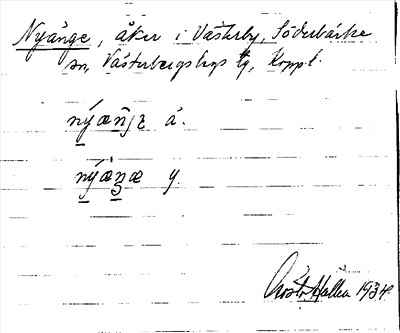 Nyänge, åker i Västerby, Söderbärke
sn, Västerbergslags tg, Koppl.
nýæŋ̃jɛ å.
nýæ̀ŋæ y.
Gösta Hallén 1934.